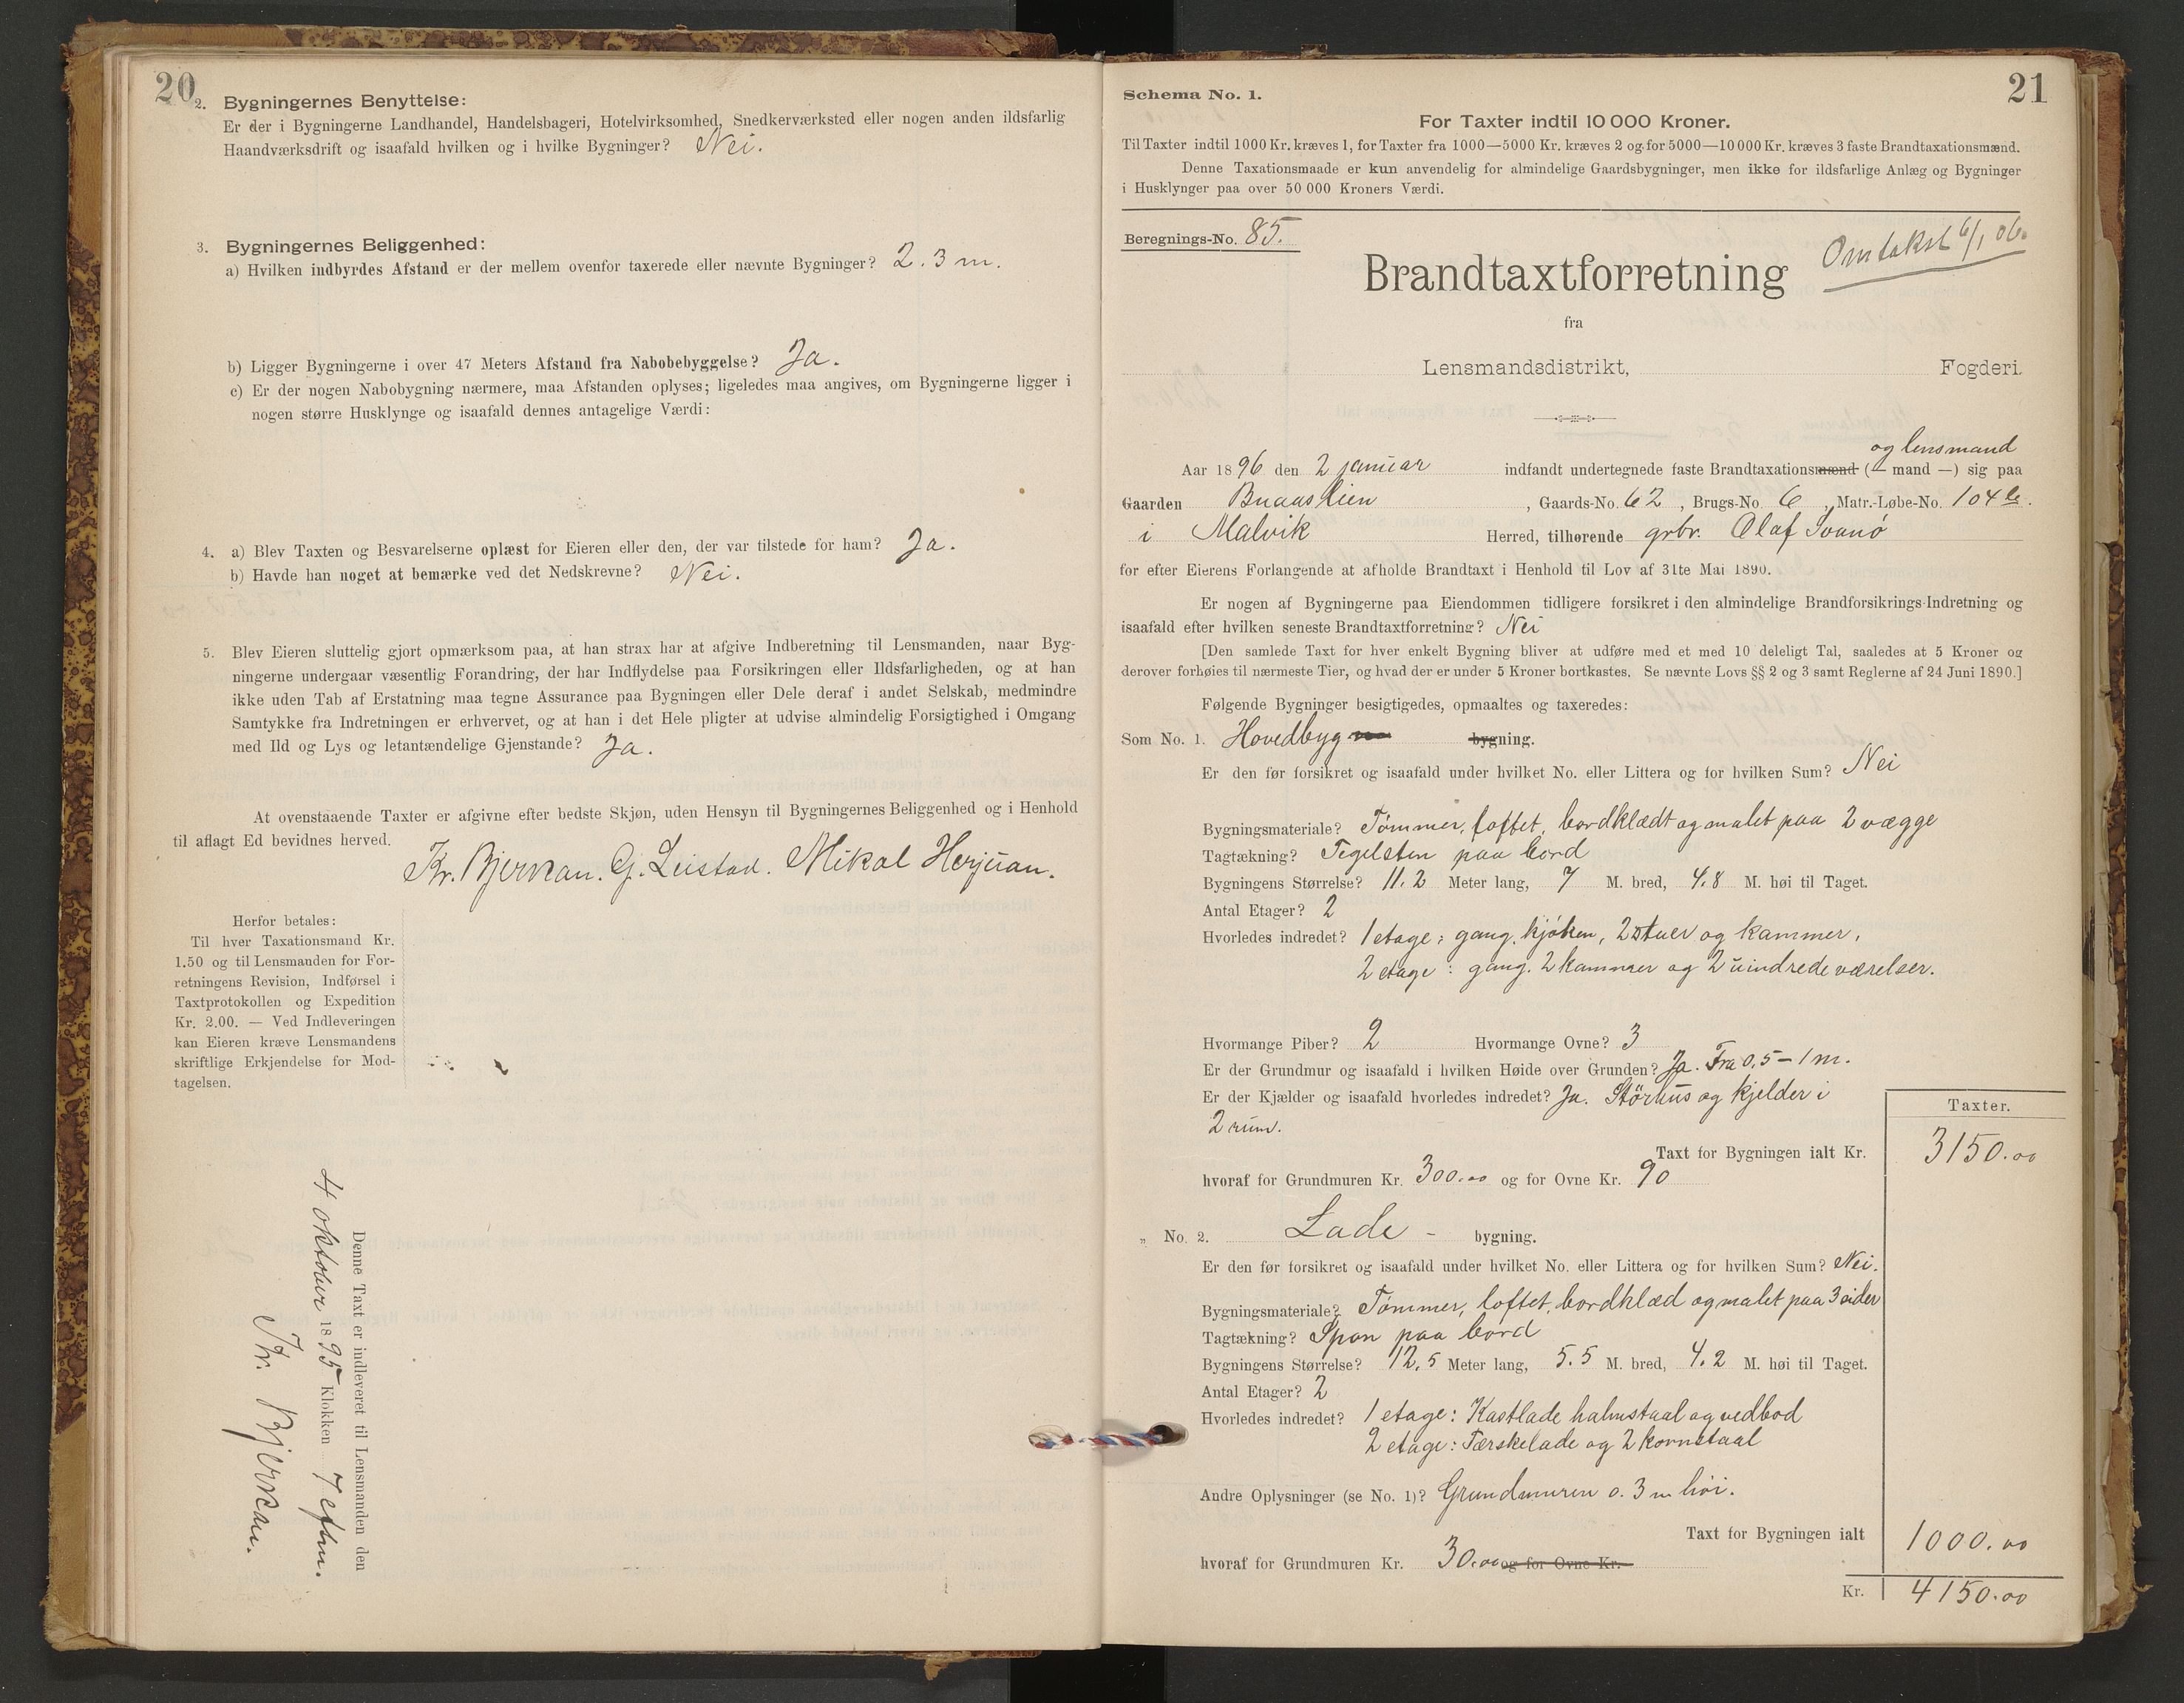 20
2. Bygningernes Benyttelse:
Er der i Bygningerne Landhandel, Handelsbageri, Hotelvirksomhed, Snedkerværksted eller nogen anden ildsfarlig
Haandværksdrift og isaafald hvilken og i hvilke Bygninger? Nei.
3. Bygningernes Beliggenhed:
a) Hvilken indbyrdes Afstand er der mellem ovenfor taxerede eller nævnte Bygninger? 2.3 m.
b) Ligger Bygningerne i over 47 Meters Afstand fra Nabobebyggelse? Ja.
c) Er der nogen Nabobygning nærmere, maa Afstanden oplyses; ligeledes maa angives, om Bygningerne ligger i
nogen større Husklynge og isaafald dennes antagelige Værdi:
4. a) Blev Taxten og Besvarelserne oplæst for Eieren eller den, der var tilstede for ham? Ja.
b) Havde han noget at bemærke ved det Nedskrevne? Nei.
5. Blev Eieren sluttelig gjort opmærksom paa, at han strax har at afgive Indberetning til Lensmanden, naar Byg-
ningerne undergaar væsentlig Forandring, der har Indflydelse paa Forsikringen eller Ildsfarligheden, og at han
ikke uden Tab af Erstatning maa tegne Assurance paa Bygningen eller Dele deraf i andet Selskab, medmindre
Samtykke fra Indretningen er erhvervet, og at han i det Hele pligter at udvise almindelig Forsigtighed i Omgang
med Ild og Lys og letantændelige Gjenstande? Ja.
At ovenstaaende Taxter er afgivne efter bedste Skjøn, uden Hensyn til Bygningernes Beliggenhed og i Henhold
til aflagt Ed bevidnes herved.
Kr. Bjerkan. G. Leistad. Mikal Herjuan.
Herfor betales:
Til hver Taxationsmand Kr.
1.50 og til Lensmanden for For-
retningens Revision, Indførsel i
Taxtprotokollen og Expedition
Kr. 2.00. — Ved Indleveringen
kan Eieren kræve Lensmandens
skriftlige Erkjendelse for Mod-
tagelsen.
Denne Taxt er indleveret til Lensmanden den
4 oktober 1895 Klokken 7 eftm.
Kr. Bjerkan.
21
Schema No. 1.
For Taxter indtil 10 000 Kroner.
Til Taxter indtil 1000 Kr. kræves 1, for Taxter fra 1000—5000 Kr. kræves 2 og for 5000—10 000 Kr. kræves 3 faste Brandtaxationsmænd.
Denne Taxationsmaade er kun anvendelig for almindelige Gaardsbygninger, men ikke for ildsfarlige Anlæg og Bygninger
i Husklynger paa over 50 000 Kroners Værdi.
Beregnings-No. 85.
Omtakst 6/1 06.
Brandtaxtforretning
fra
Lensmandsdistrikt, Fogderi.
og lensmand
Aar 1896 den 2 januar indfandt undertegnede faste Brandtaxationsmænd (— mand —) sig paa
Gaarden Bruaaslien, Gaards-No. 62, Brugs-No. 6, Matr.-Løbe-No. 104 c.
i Malvik Herred, tilhørende grbr. Olaf Svanø
for efter Eierens Forlangende at afholde Brandtaxt i Henhold til Lov af 31te Mai 1890.
Er nogen af Bygningerne paa Eiendommen tidligere forsikret i den almindelige Brandforsikrings-Indretning og
isaafald efter hvilken seneste Brandtaxtforretning? Nei
[Den samlede Taxt for hver enkelt Bygning bliver at udføre med et med 10 deleligt Tal, saaledes at 5 Kroner og
derover forhøies til nærmeste Tier, og hvad der er under 5 Kroner bortkastes. Se nævnte Lovs §§ 2 og 3 samt Reglerne af 24 Juni 1890.]
Følgende Bygninger besigtigedes, opmaaltes og taxeredes:
Som No. 1. Hovedbyg bygning.
Er den før forsikret og isaafald under hvilket No. eller Littera og for hvilken Sum? Nei
Bygningsmateriale? Tømmer, loftet, bordklædt og malet paa 2 vægge
Tagtækning? Tegelsten paa bord
Bygningens Størrelse? 11.2 Meter lang, 7 M. bred, 4.8 M. høi til Taget.
Antal Etager? 2
Hvorledes indredet? 1 etage: gang, kjøken, 2 stuer og kammer.
2 etage: gang, 2 kammer og 2 uindrede værelser.
Hvormange Piber? 2 Hvormange Ovne? 3
Er der Grundmur og isaafald i hvilken Høide over Grunden? Ja. Fra 0,5 – 1 m.
Er der Kjælder og isaafald hvorledes indredet? Ja. Störhus og kjelder i
2 rum.
Taxter.
Taxt for Bygningen ialt Kr. 3150.00
hvoraf for Grundmuren Kr. 300.00 og for Ovne Kr. 90
„ No. 2. Lade - bygning.
Er den før forsikret og isaafald under hvilket No. eller Littera og for hvilken Sum? Nei.
Bygningsmateriale? Tømmer, loftet, bordklæd og malet paa 3 sider
Tagtækning? Spon paa bord
Bygningens Størrelse? 12.5 Meter lang, 5.5 M. bred, 4.2 M. høi til Taget.
Antal Etager? 2
Hvorledes indredet? 1 etage: Kastlade halmstaal og vedbod
2 etage: Tærskelade og 2 kornstaal
Andre Oplysninger (se No. 1)? Grundmuren 0.3 m høi.
Taxt for Bygningen ialt 1000.00
hvoraf for Grundmuren Kr. 30.00 og for Ovne Kr.
Kr. 4150.00